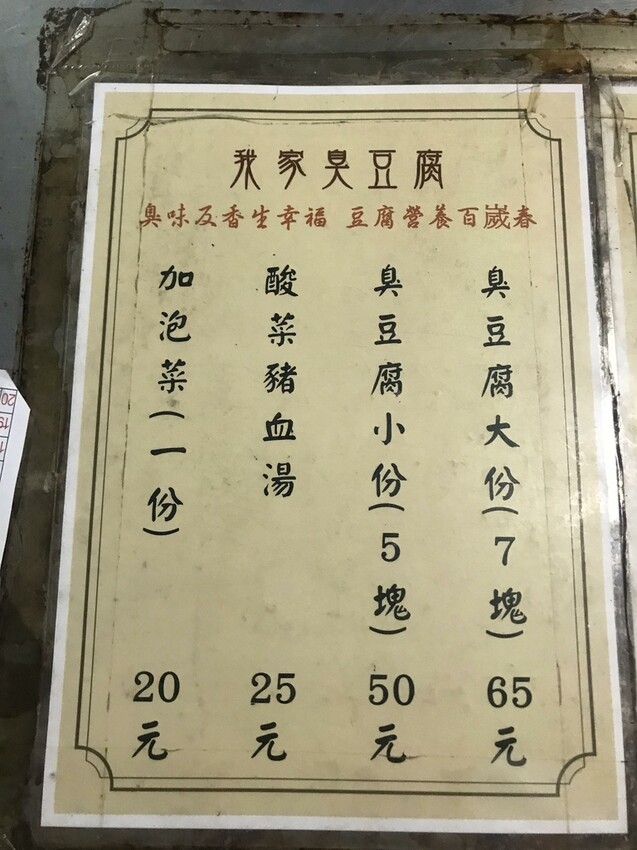 我家臭豆腐
臭味反香生幸福 豆腐營養百歲春
臭豆腐大份(7塊) 65元
臭豆腐小份(5塊) 50元
酸菜豬血湯 25元
加泡菜(一份) 20元
20
19